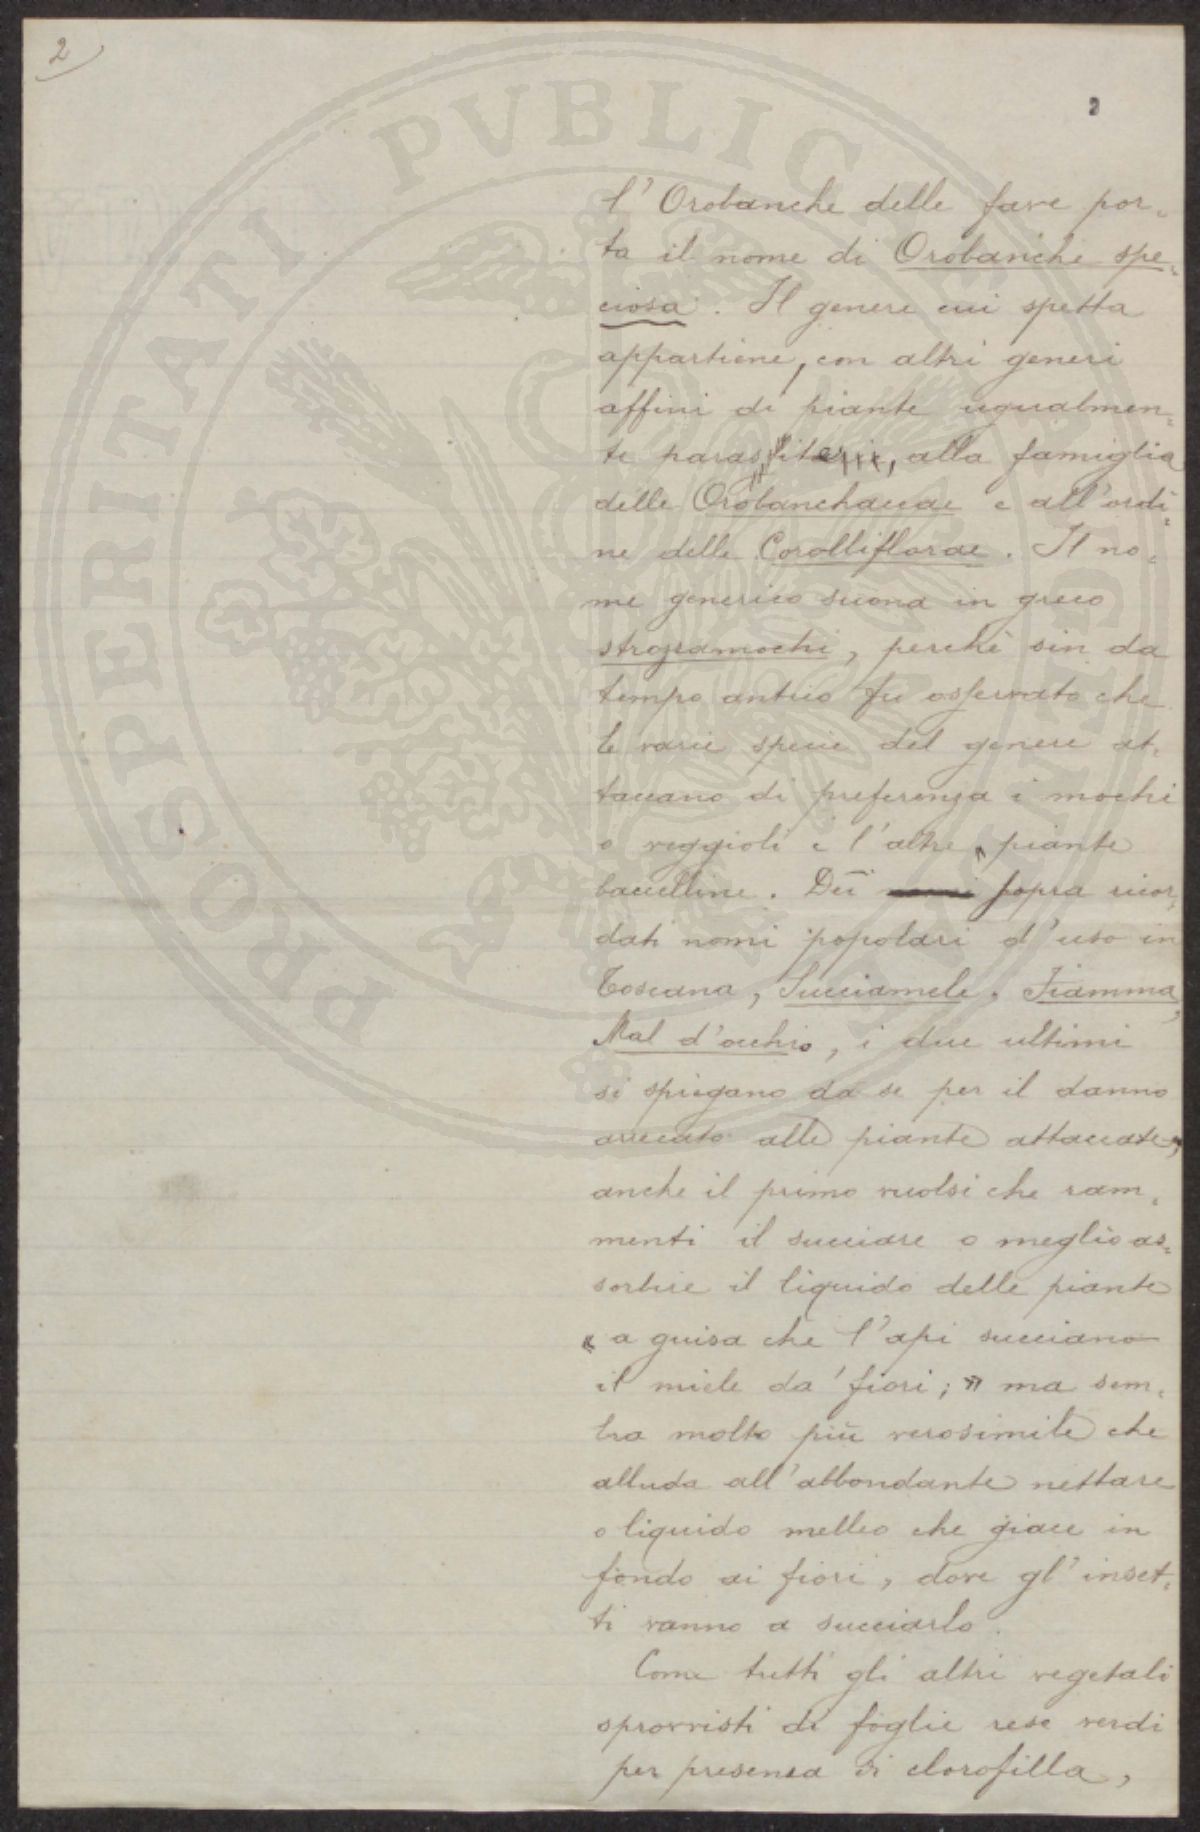 2
2
l'Orobanche delle fave por-
ta il nome di Orobanche spe-
ciosa. Il genere cui spetta
appartiene, con altri generi
affini di piante ugualmen-
te parassite, alla famiglia
delle Orobanchaceae e all'ordi-
ne delle Corolliflorae. Il no-
me generico suona in greco
strozzamochi, perchè sin da
tempo antico fu osservato che
le varie specie del genere at-
taccano di preferenza i mochi
o veggioli e l'altre piante
baccelline. Dei sopra ricor-
dati nomi popolari d'uso in
Toscana, Succiamele, Fiamma,
Mal d'occhio, i due ultimi
si spiegano da se per il danno
arrecato alle piante attaccate;
anche il primo vuolsi che ram-
menti il succiare o meglio as-
sorbire il liquido delle piante
« a guisa che l'api succiano
il miele da' fiori; » ma sem-
bra molto più verosimile che
alluda all'abbondante nettare
o liquido melleo che giace in
fondo ai fiori, dove gl'inset-
ti vanno a succiarlo.
Come tutti gli altri vegetali
sprovvisti di foglie rese verdi
per presenza di clorofilla,
PROSPERITATI PVBLICAE